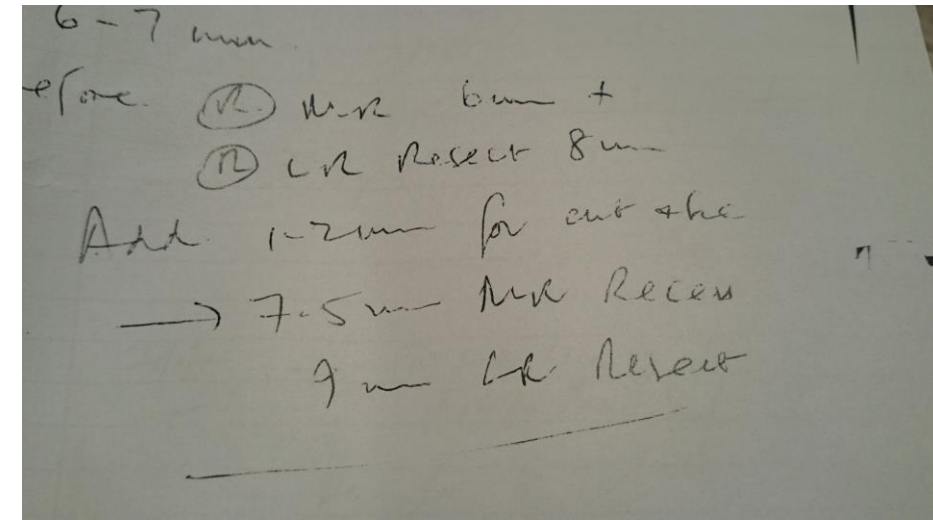 6-7 mm
efore. (R) MR 6mm +
(R) LR Resect 8mm
Add 1-2mm for
→ 7.5mm MR Recess
9mm LR Resect